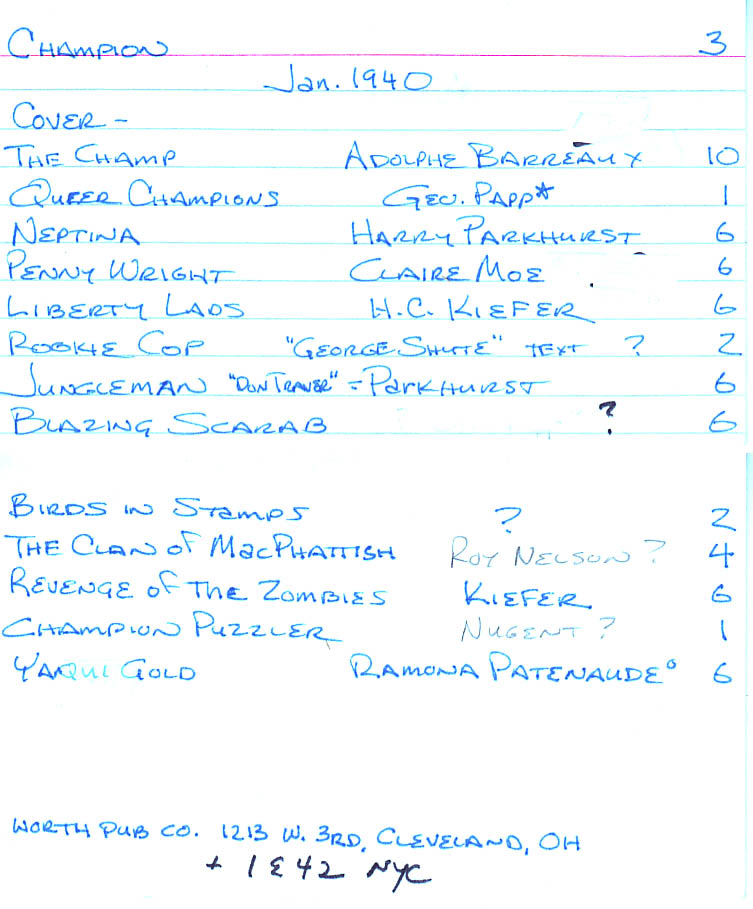 CHAMPION 3
Jan. 1940
COVER -
THE CHAMP ADOLPHE BARREAUX 10
QUEER CHAMPIONS GEO. PAPP* 1
NEPTINA HARRY PARKHURST 6
PENNY WRIGHT CLAIRE MOE 6
LIBERTY LADS H.C. KIEFER 6
ROOKIE COP "GEORGE SHUTE" TEXT ? 2
JUNGLEMAN "DON TRAVER" = PARKHURST 6
BLAZING SCARAB ? 6
BIRDS IN STAMPS ? 2
THE CLAN OF MacPHATTISH ROY NELSON ? 4
REVENGE OF THE ZOMBIES KIEFER 6
CHAMPION PUZZLER NUGENT ? 1
YAQUI GOLD RAMONA PATENAUDE° 6
WORTH PUB CO. 1213 W. 3RD, CLEVELAND, OH
+ 1 E 42 NYC